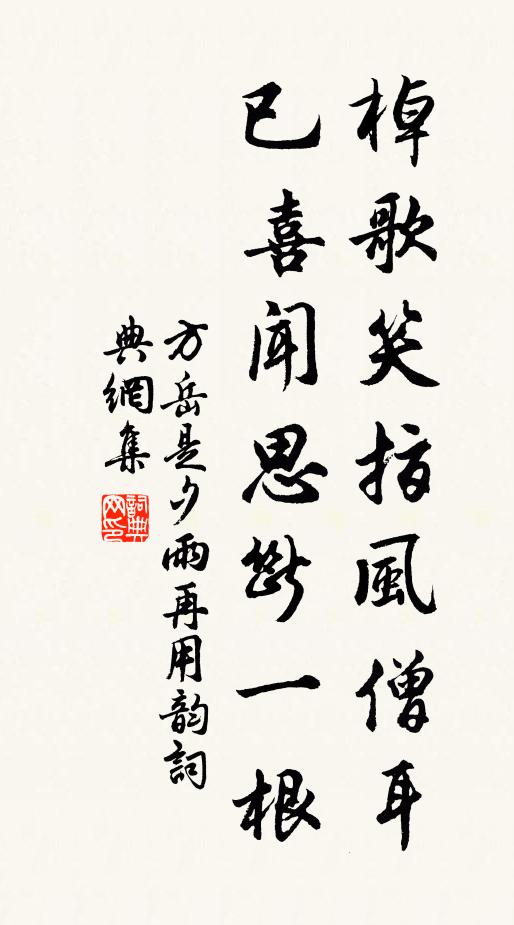 棹歌笑指風僧耳
已喜聞思斷一根
方岳是夕雨再用韵詞
典網集
詞典
网印